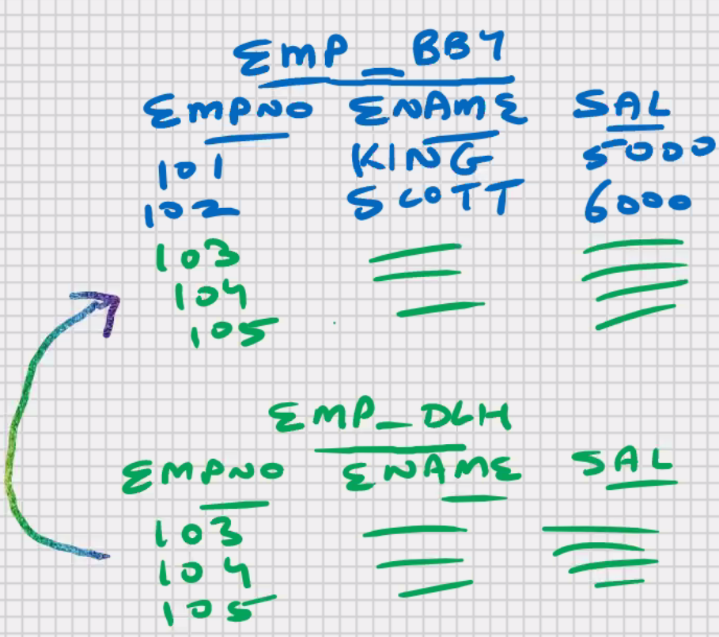 EMP_BBY
EMPNO ENAME SAL
101 KING 5000
102 SCOTT 6000
103
104
105
EMP_DLH
EMPNO ENAME SAL
103
104
105